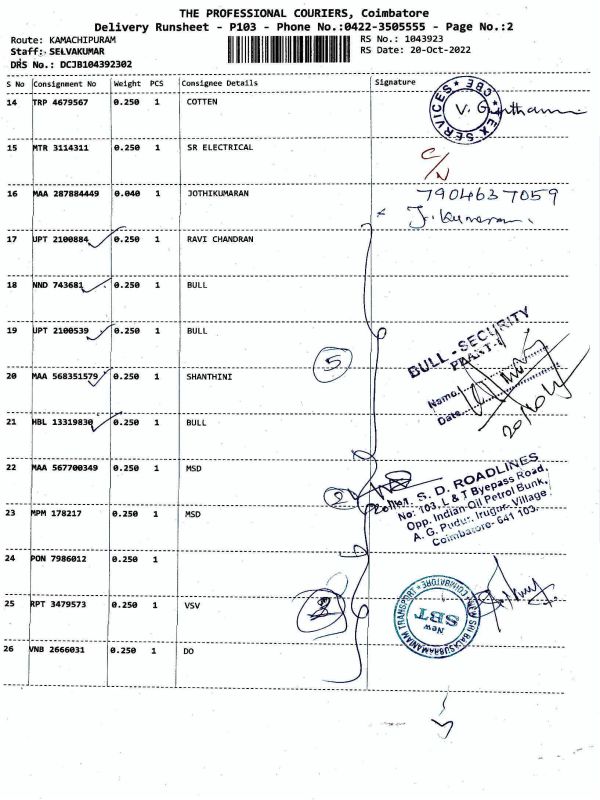 THE PROFESSIONAL COURIERS, Coimbatore
Delivery Runsheet - P103 - Phone No.:0422-3505555 - Page No.:2
Route: KAMACHIPURAM RS No.: 1043923
Staff: SELVAKUMAR RS Date: 20-Oct-2022
DRS No.: DCJB104392302
S No Consignment No Weight PCS Consignee Details Signature
14 TRP 4679567 0.250 1 COTTEN
TEX SERVICES * CBE *
15 MTR 3114311 0.250 1 SR ELECTRICAL
C/N
16 MAA 287884449 0.040 1 JOTHIKUMARAN 7904637059
17 UPT 2100884 0.250 1 RAVI CHANDRAN
18 NND 743681 0.250 1 BULL
19 UPT 2100539 0.250 1 BULL
BULL - SECURITY
5
Name
Date
20 MAA 568351579 0.250 1 SHANTHINI
21 HBL 13319830 0.250 1 BULL
22 MAA 567700349 0.250 1 MSD
S. D. ROADLINES
No: 103, L & T Byepass Road,
Opp. Indian Oil Petrol Bunk,
A. G. Pudur, Irugur Village
Coimbatore- 641 103.
23 MPM 178217 0.250 1 MSD
24 PON 7986012 0.250 1
25 RPT 3479573 0.250 1 VSV
NEW SRI BALASUBRAMANIAM TRANSPORT * COIMBATORE *
New
SBT
26 VNB 2666031 0.250 1 DO